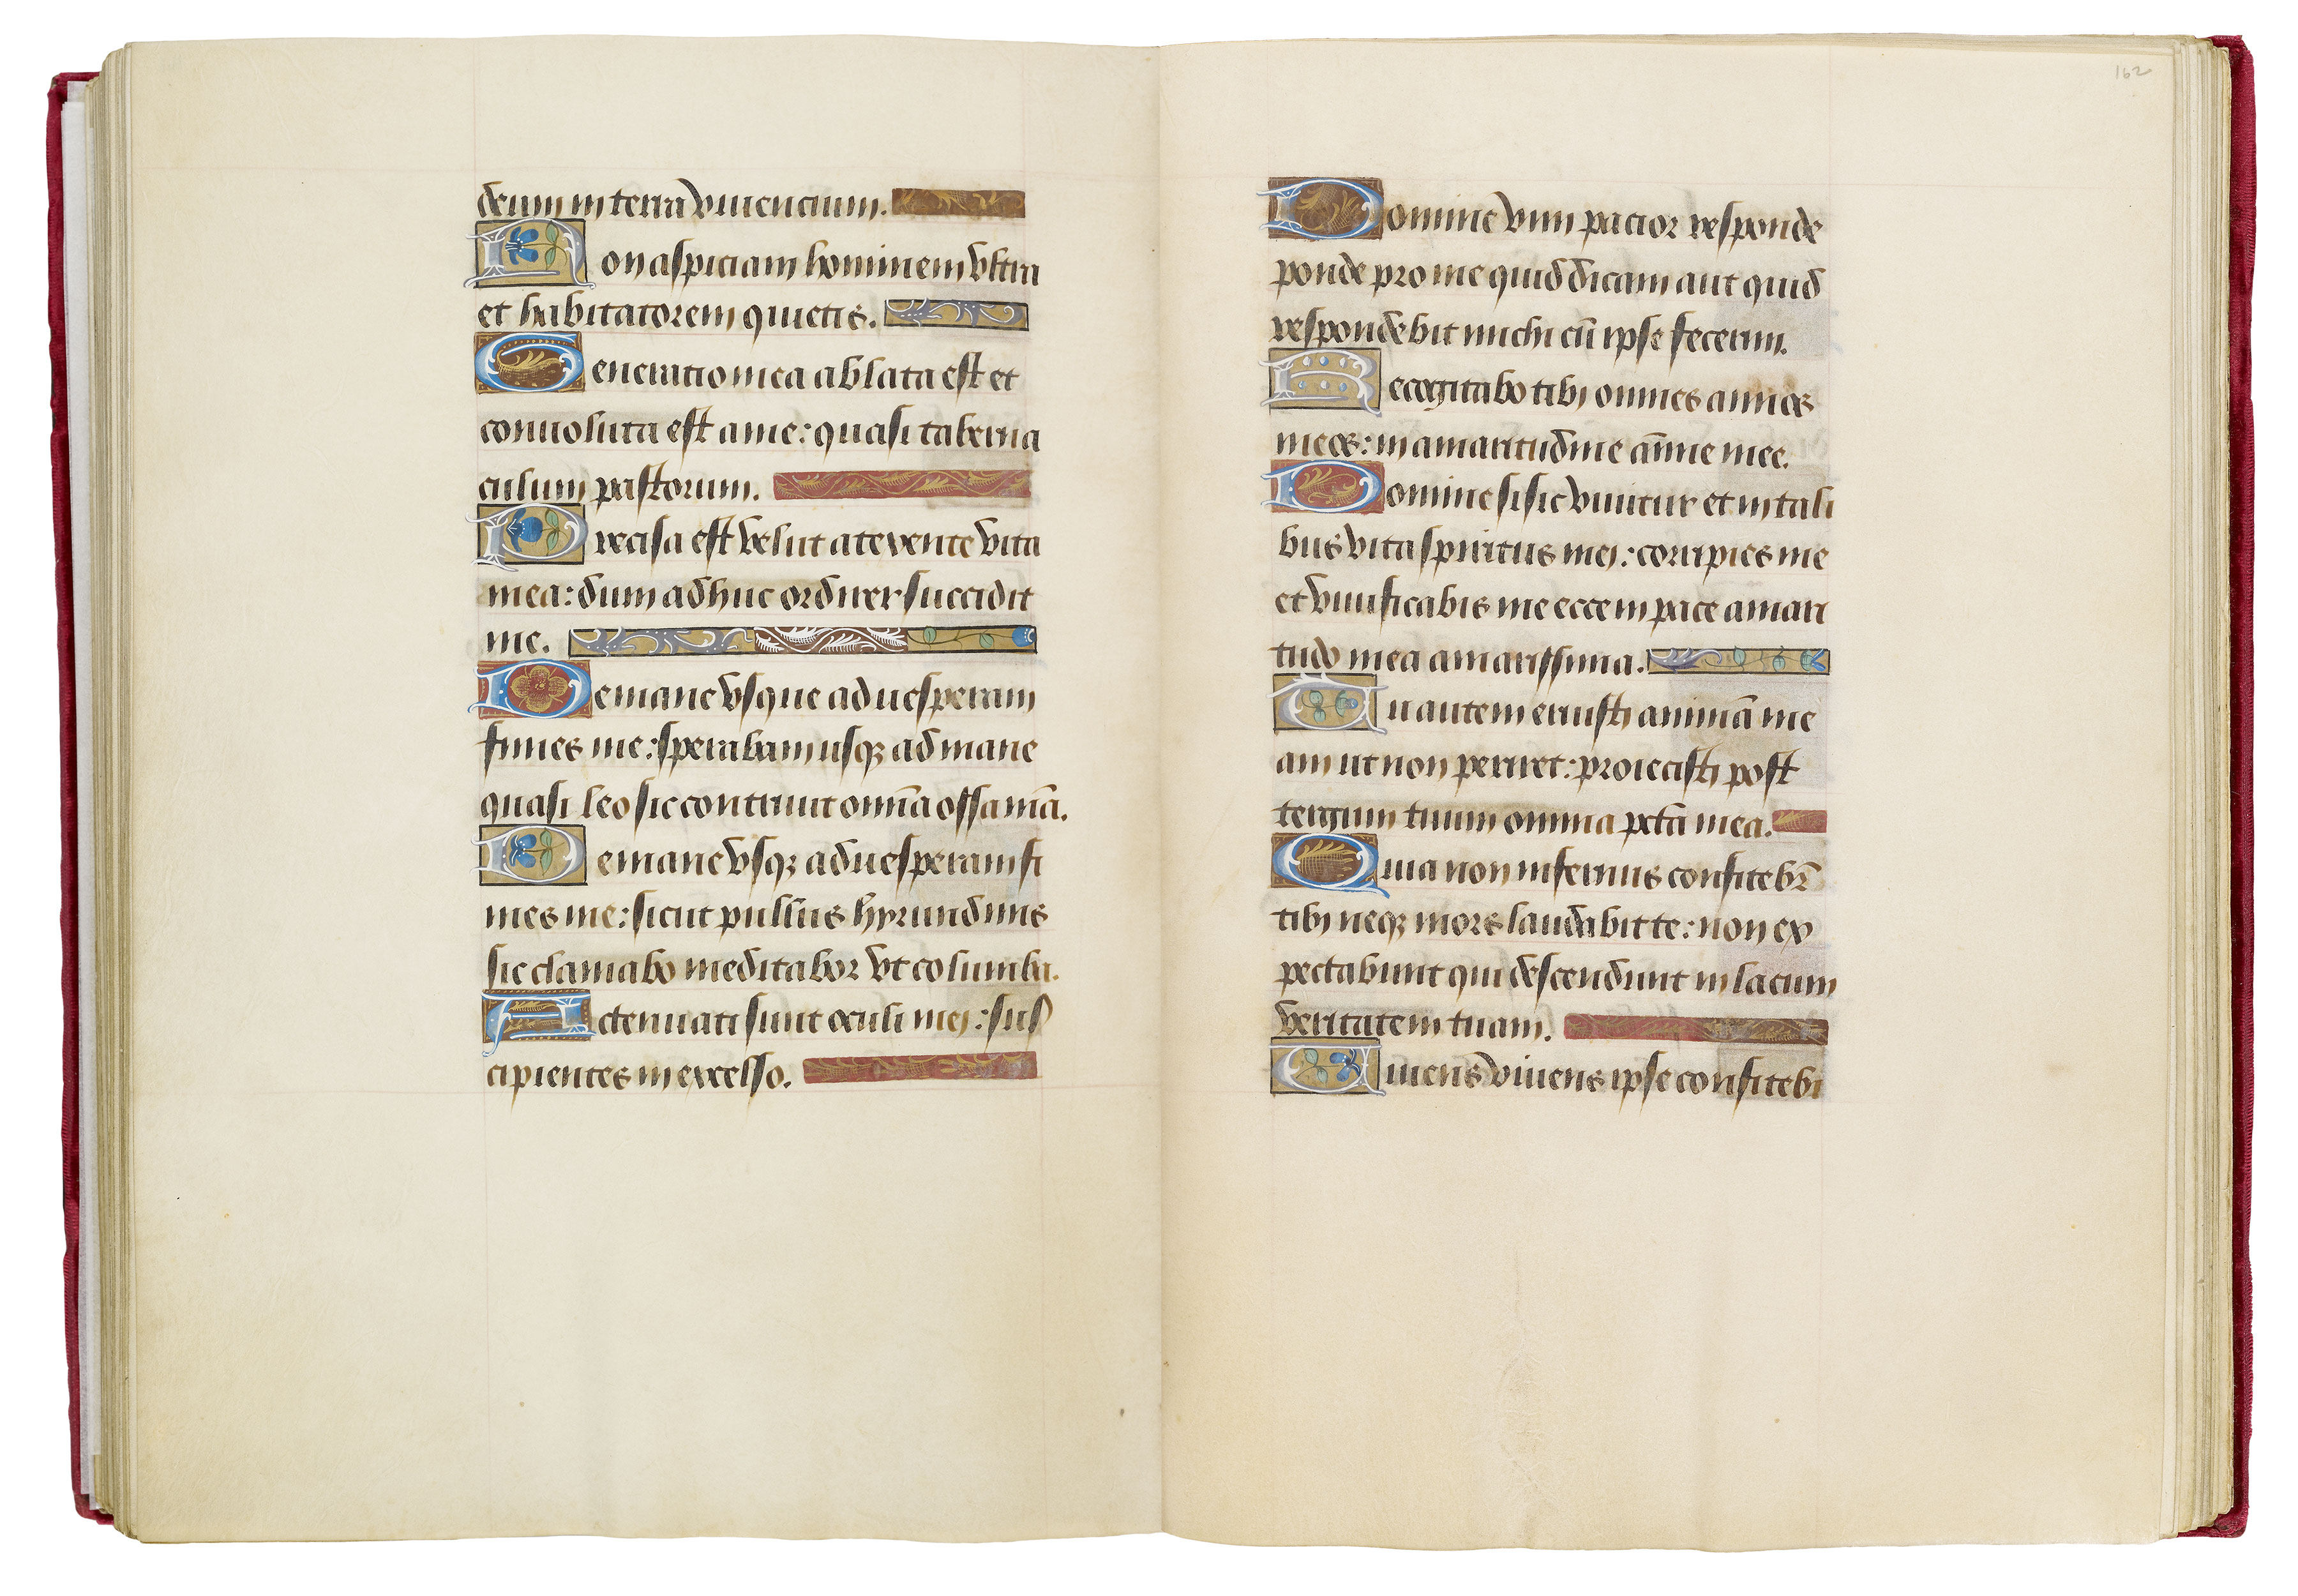 deum in terra viuencium.
Non aspiciam hominem vltra
et habitatorem quietis.
Generatio mea ablata est et
conuoluta est a me: quasi taberna
culum pastorum.
Precisa est velut a texente vita
mea: dum adhuc ordirer succidit
me.
De mane vsque ad uesperam
finies me: sperabam usqꝫ ad mane
quasi leo sic contriuit om̄ia ossa mēa.
De mane vsqꝫ ad uesperam fi
nies me: sicut pullus hyrundinis
sic clamabo meditabor vt columba.
Actenuati sunt oculi mei: sus
cipientes in excelso.
162
Domine vim pacior responde
ponde pro me quid dicam aut quid
respondebit michi cū ipse fecerim.
Recogitabo tibi omnes annos
meos: in amaritudine āīme mee.
Domine si sic viuitur et in tali
bus vita spiritus mei: corripies me
et viuificabis me ecce in pace amari
tudo mea amarissima.
Tu autem eruisti animā me
am ut non periret: proiecisti post
tergum tuum omnia pctā mea.
Quia non infernus confitebr̄
tibi neqꝫ mors laudabit te: non ex
pectabunt qui descendunt in lacum
veritatem tuam.
Viuens viuens ipse confitebi